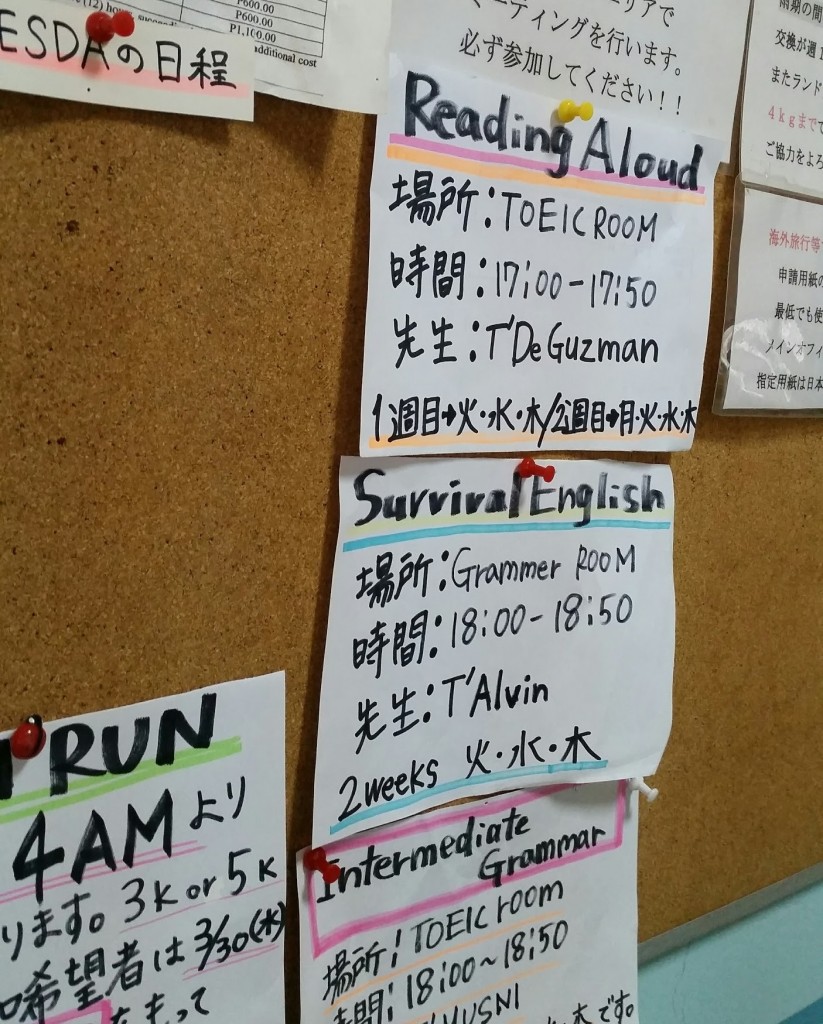 P600.00
P600.00
P1,100.00
additional cost
ESDAの日程
ーティングを行います。
必ず参加してください!!
交換が週1
またランド
4kgまで
ご協力をよろ
海外旅行等
申請用紙の
最低でも使
メインオフィ
指定用紙は日本
Reading Aloud
場所:TOEIC ROOM
時間:17:00-17:50
先生:T'De Guzman
1週目→火・水・木/2週目→月・火・水・木
Survival English
場所:Grammer ROOM
時間:18:00-18:50
先生:T'Alvin
2weeks 火・水・木
Intermediate
Grammar
場所:TOEIC room
時間:18:00~18:50
木です。
RUN
4AMより
ります。3K or 5K
希望者は3/30(水)